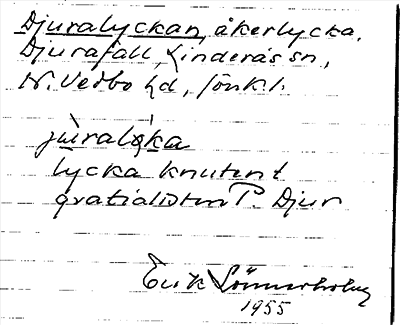 Djuralyckan, åkerlycka.
Djurafall, Linderås sn,
N. Vedbo hd, Jönk l.
jùralỳka
lycka knuten t
gratialisten P. Djur
Erik Sönnerholm
1955